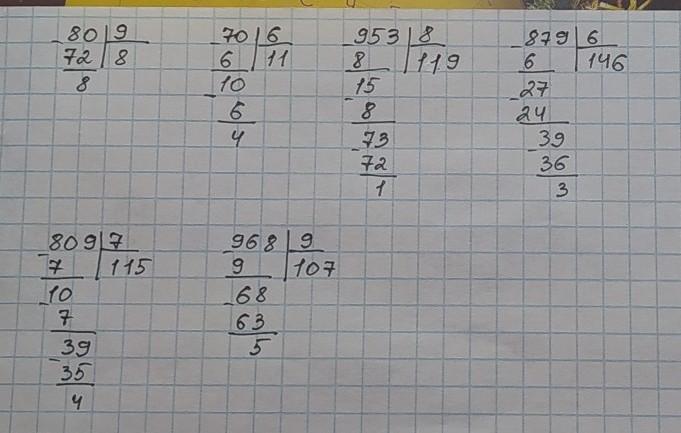 80 9
72 8
8
70 6
6 11
10
6
4
953 8
8 119
15
8
73
72
1
879 6
6 146
27
24
39
36
3
809 7
7 115
10
7
39
35
4
968 9
9 107
68
63
5